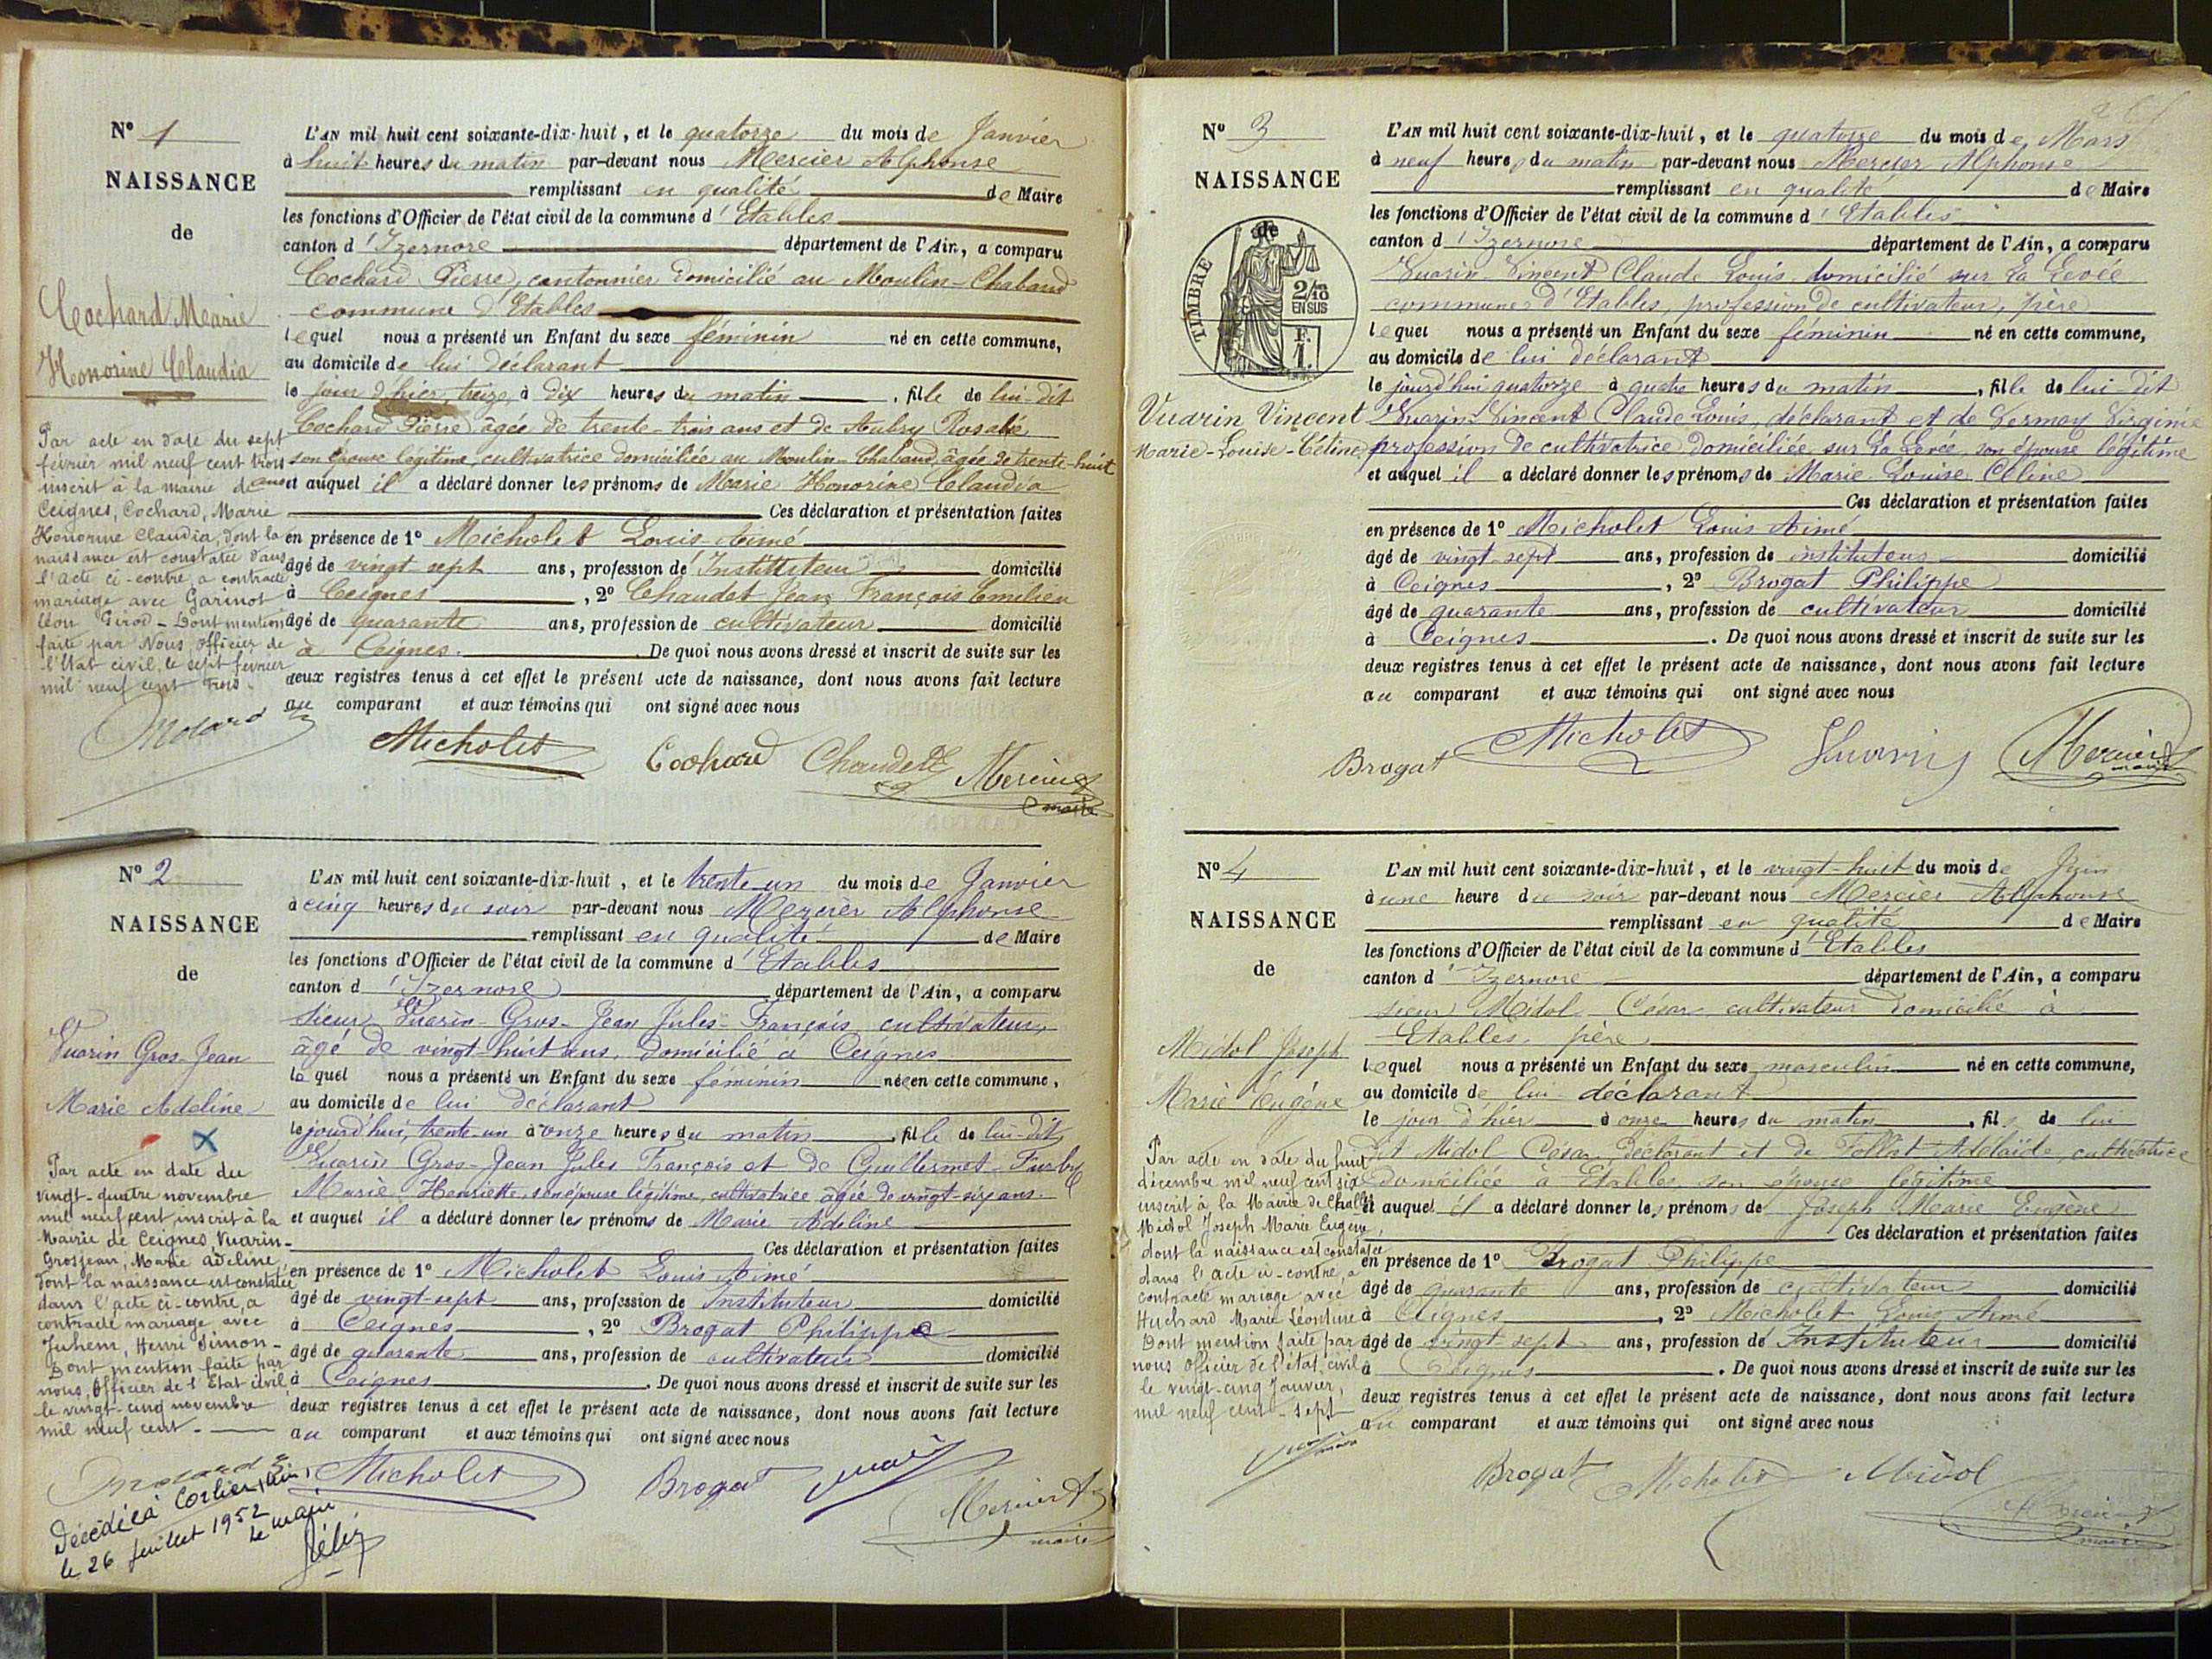 N° 1
NAISSANCE
de
Cochard Marie
Honorine Claudia
L'AN mil huit cent soixante-dix-huit, et le quatorze du mois de Janvier
à huit heures du matin par-devant nous Mercier Alphonse
remplissant en qualité de Maire
les fonctions d'Officier de l'état civil de la commune d'Etables
canton d'Izernore département de l'Ain, a comparu
Cochard Pierre, cantonnier domicilié au Moulin-Chabaud
commune d'Etables
lequel nous a présenté un Enfant du sexe féminin né en cette commune,
au domicile de lui déclarant
le jour d'hier, treize, à dix heures du matin, fille de lui-dit
Cochard Pierre, âgée de trente-trois ans et de Aubry Rosalie
son épouse légitime, cultivatrice domiciliée au Moulin-Chabaud, âgée de trente-huit
ans et auquel il a déclaré donner les prénoms de Marie Honorine Claudia
Ces déclaration et présentation faites
en présence de 1° Micholet Louis Aimé
âgé de vingt-sept ans, profession de Instituteur domicilié
à Ceignes, 2° Chaudet Jean François Emilien
âgé de quarante ans, profession de cultivateur domicilié
à Ceignes. De quoi nous avons dressé et inscrit de suite sur les
deux registres tenus à cet effet le présent acte de naissance, dont nous avons fait lecture
au comparant et aux témoins qui ont signé avec nous
Par acte en date du sept
février mil neuf cent trois
inscrit à la mairie de
Ceignes, Cochard, Marie
Honorine Claudia, dont la
naissance est constatée dans
l'acte ci-contre, a contracté
mariage avec Garinot
Léon Girod - Dont mention
faite par Nous, Officier de
l'Etat civil, le sept février
mil neuf cent trois.
Micholet Cochard Chaudet Mercier
maire
N° 2
NAISSANCE
de
Vuarin Gros-Jean
Marie Adeline
L'AN mil huit cent soixante-dix-huit, et le trente-un du mois de Janvier
à cinq heures du soir par-devant nous Mercier Alphonse
remplissant en qualité de Maire
les fonctions d'Officier de l'état civil de la commune d'Etables
canton d'Izernore département de l'Ain, a comparu
sieur Vuarin-Gros-Jean Jules-François cultivateur,
âgé de vingt-huit ans, domicilié à Ceignes
lequel nous a présenté un Enfant du sexe féminin née en cette commune,
au domicile de lui déclarant
le jourd'hui, trente-un à onze heures du matin, fille de lui-dit
Vuarin Gros-Jean Jules François et de Guillermet-
Marie Henriette, son épouse légitime, cultivatrice âgée de vingt-six ans.
et auquel il a déclaré donner les prénoms de Marie Adeline
Ces déclaration et présentation faites
en présence de 1° Micholet Louis Aimé
âgé de vingt-sept ans, profession de Instituteur domicilié
à Ceignes, 2° Brogat Philippe
âgé de quarante ans, profession de cultivateur domicilié
à Ceignes. De quoi nous avons dressé et inscrit de suite sur les
deux registres tenus à cet effet le présent acte de naissance, dont nous avons fait lecture
au comparant et aux témoins qui ont signé avec nous
Par acte en date du
vingt-quatre novembre
mil neuf cent inscrit à la
Mairie de Ceignes, Vuarin-
Grosjean, Marie Adeline,
dont la naissance est constatée
dans l'acte ci-contre, a
contracté mariage avec
Juhem, Henri Simon -
Dont mention faite par
nous, Officier de l'Etat civil
le vingt-cinq novembre
mil neuf cent.
Micholet Brogat Mercier
maire
Décédée à Corlier (Ain)
le 26 juillet 1952
Le maire
N° 3
NAISSANCE
de
TIMBRE
2/10
EN SUS
F.
1.
Vuarin Vincent
Marie-Louise-Céline
L'AN mil huit cent soixante-dix-huit, et le quatorze du mois de Mars
à neuf heures du matin par-devant nous Mercier Alphonse
remplissant en qualité de Maire
les fonctions d'Officier de l'état civil de la commune d'Etables
canton d'Izernore département de l'Ain, a comparu
Vuarin-Vincent Claude Louis domicilié sur La Levée
commune d'Etables, profession de cultivateur, père
lequel nous a présenté un Enfant du sexe féminin né en cette commune,
au domicile de lui déclarant
le jourd'hui quatorze à quatre heures du matin, fille de lui-dit
Vuarin Vincent Claude Louis, déclarant et de Vermay Virginie
profession de cultivatrice domiciliée sur La Levée, son épouse légitime
et auquel il a déclaré donner les prénoms de Marie Louise Céline
Ces déclaration et présentation faites
en présence de 1° Micholet Louis Aimé
âgé de vingt-sept ans, profession de instituteur domicilié
à Ceignes, 2° Brogat Philippe
âgé de quarante ans, profession de cultivateur domicilié
à Ceignes. De quoi nous avons dressé et inscrit de suite sur les
deux registres tenus à cet effet le présent acte de naissance, dont nous avons fait lecture
au comparant et aux témoins qui ont signé avec nous
Brogat Micholet Vuarin Mercier
maire
N° 4
NAISSANCE
de
Midol Joseph
Marie Eugène
L'AN mil huit cent soixante-dix-huit, et le vingt-huit du mois de Juin
à une heure du soir par-devant nous Mercier Alphonse
remplissant en qualité de Maire
les fonctions d'Officier de l'état civil de la commune d'Etables
canton d'Izernore département de l'Ain, a comparu
sieur Midol César cultivateur domicilié à
Etables, père
lequel nous a présenté un Enfant du sexe masculin né en cette commune,
au domicile de lui déclarant
le jour d'hier à onze heures du matin, fils de lui
dit Midol César déclarant et de Tollet Adélaïde, cultivatrice
domiciliée à Etables, son épouse légitime
et auquel il a déclaré donner les prénoms de Joseph Marie Eugène
Ces déclaration et présentation faites
en présence de 1° Brogat Philippe
âgé de quarante ans, profession de cultivateur domicilié
à Ceignes, 2° Micholet Louis Aimé
âgé de vingt-sept ans, profession de Instituteur domicilié
à Ceignes. De quoi nous avons dressé et inscrit de suite sur les
deux registres tenus à cet effet le présent acte de naissance, dont nous avons fait lecture
au comparant et aux témoins qui ont signé avec nous
Par acte en date du huit
décembre mil neuf cent six
inscrit à la Mairie de Challes
Midol Joseph Marie Eugène,
dont la naissance est constatée
dans l'acte ci-contre, a
contracté mariage avec
Huchard Marie Léontine
Dont mention faite par
nous Officier de l'état civil
le vingt-cinq Janvier,
mil neuf cent-sept
Brogat Micholet Midol
Mercier
maire